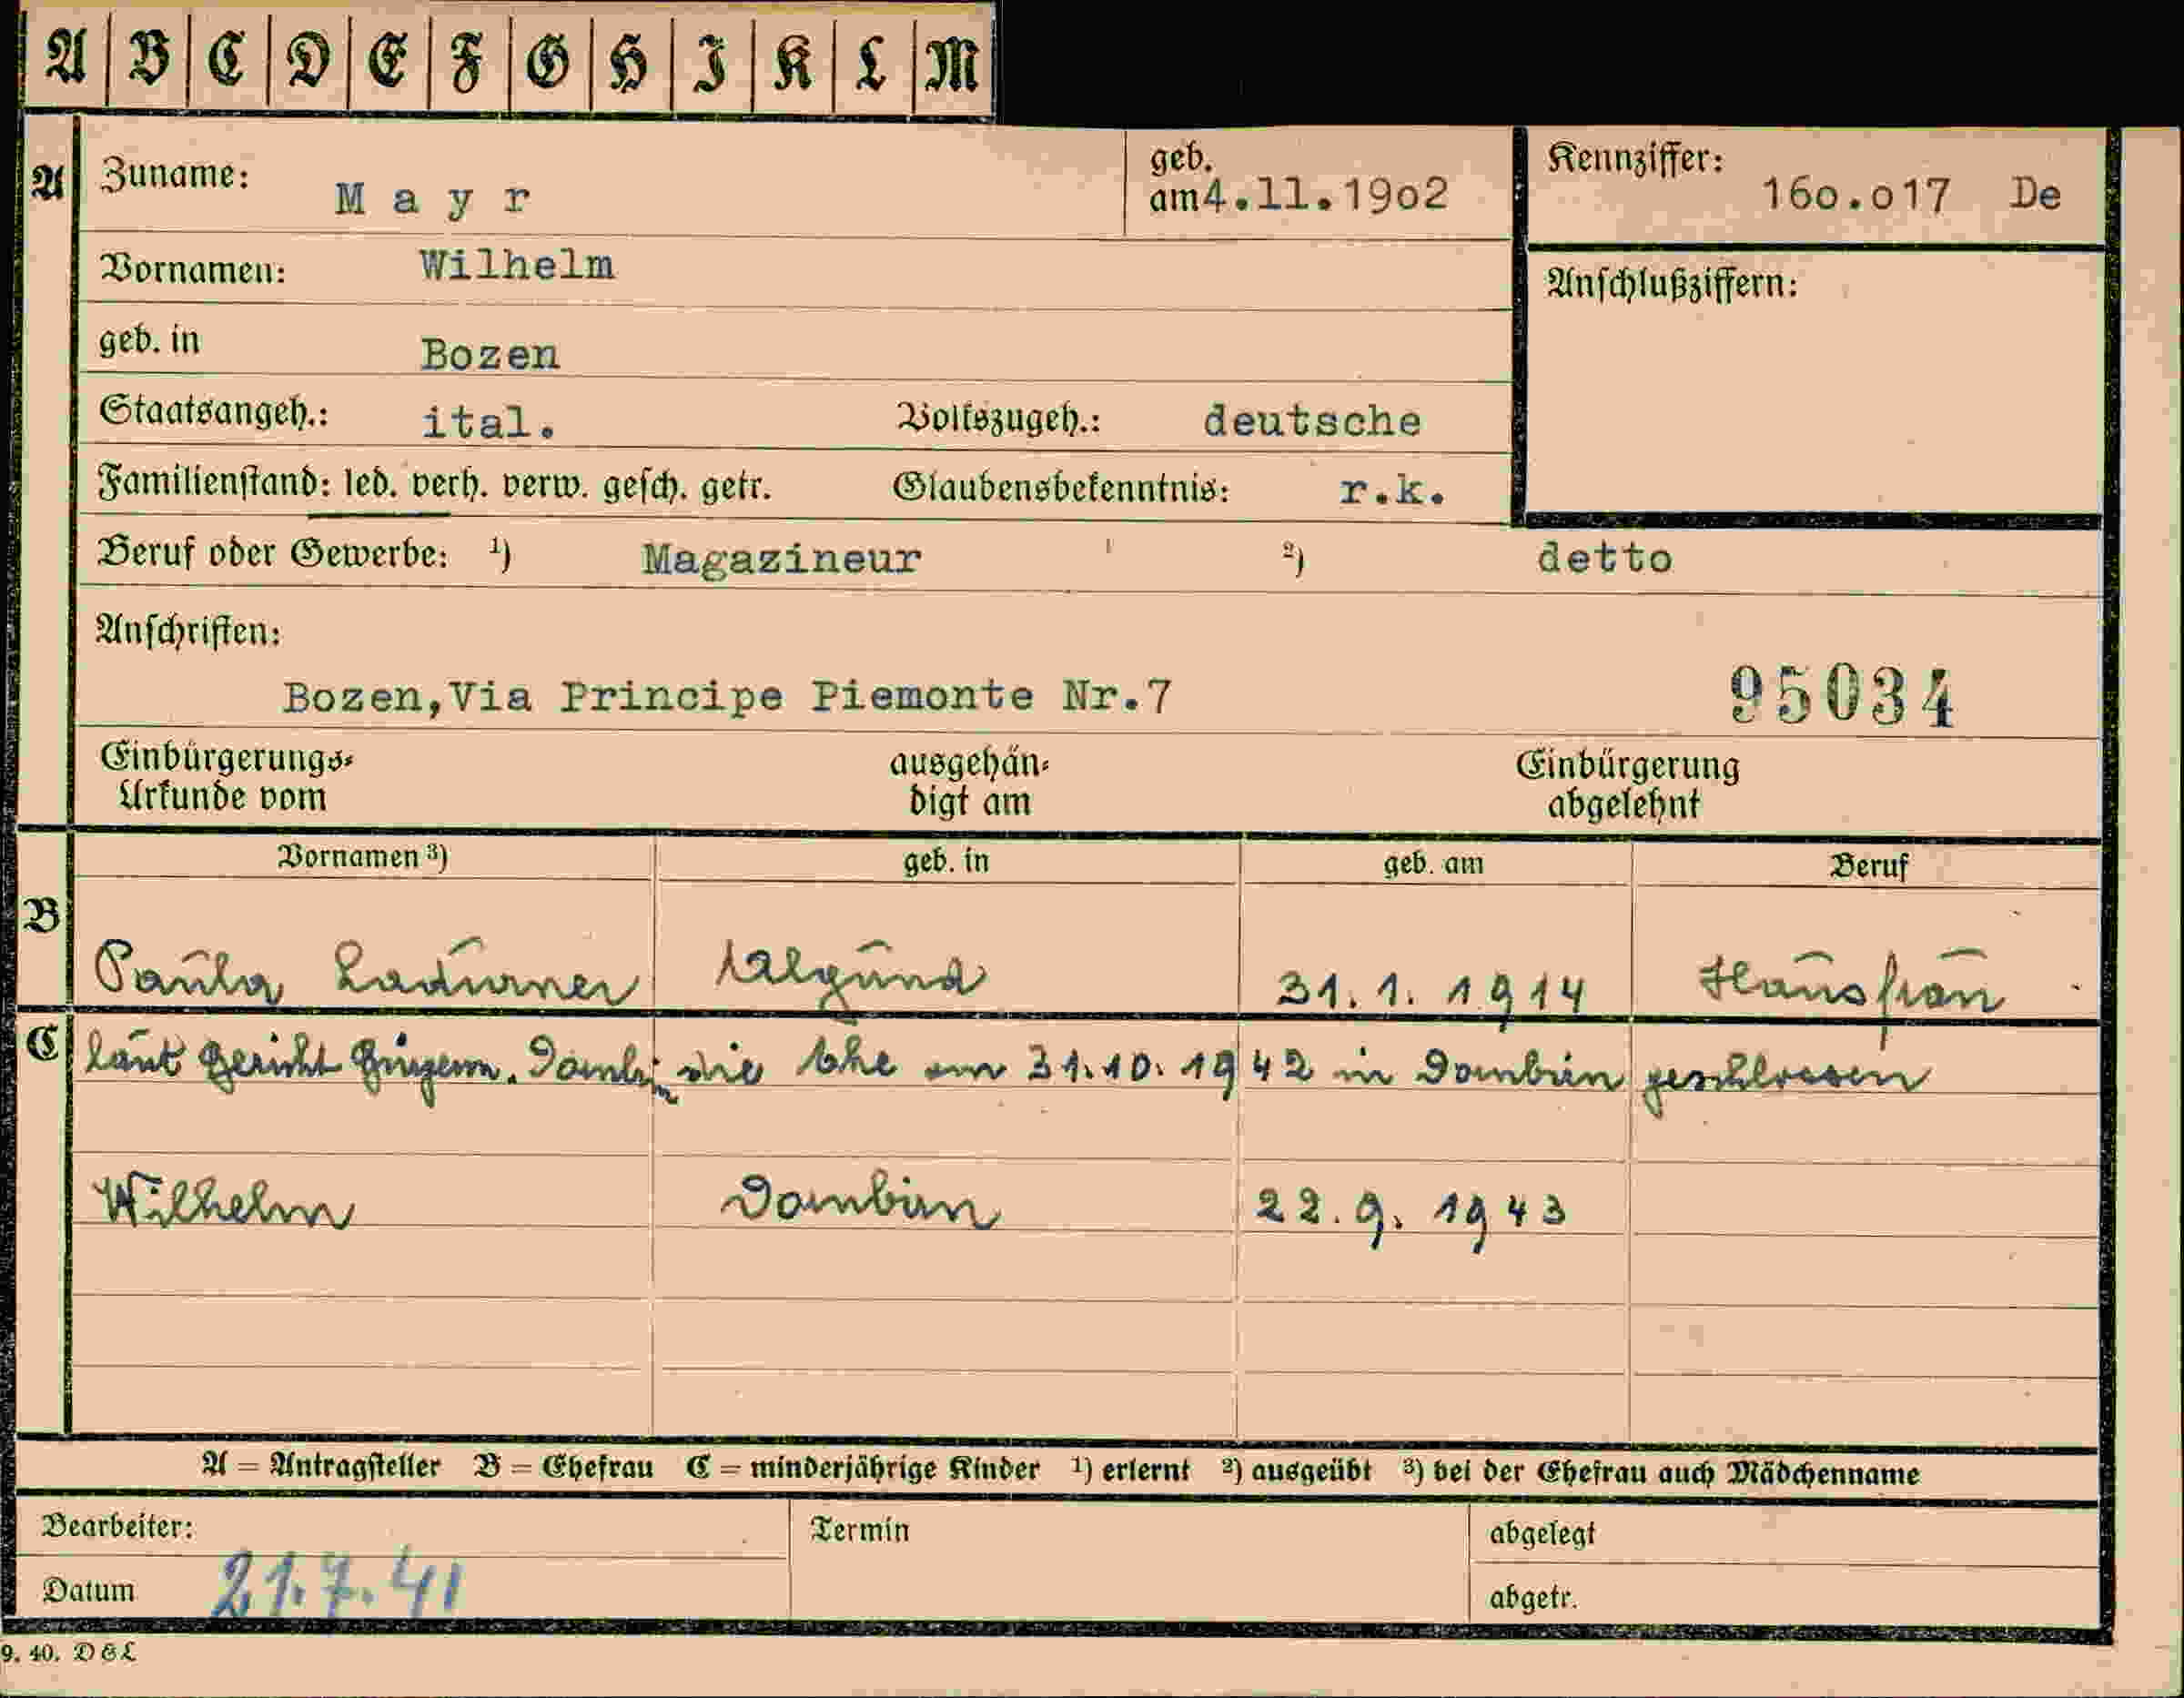 A B C D E F G H I K L M
A Zuname: Mayr geb. am 4.11.19o2 Kennziffer: 16o.o17 De
Vornamen: Wilhelm Anschlußziffern:
geb. in Bozen
Staatsangeh.: ital. Volkszugeh.: deutsche
Familienstand: led. verh. verw. gesch. getr. Glaubensbekenntnis: r.k.
Beruf oder Gewerbe: ¹) Magazineur ²) detto
Anschriften:
Bozen,Via Principe Piemonte Nr.7 95034
Einbürgerungs- ausgehän- Einbürgerung
Urkunde vom digt am abgelehnt
Vornamen ³) geb. in geb. am Beruf
B
Paula Ladurner Algund 31.1.1914 Hausfrau
C laut Bericht die Ehe am 31.10.1942 in Dornbirn geschlossen
Wilhelm Dornbirn 22.9.1943
A = Antragsteller B = Ehefrau C = minderjährige Kinder ¹) erlernt ²) ausgeübt ³) bei der Ehefrau auch Mädchenname
Bearbeiter: Termin abgelegt
Datum 21.7.41 abgetr.
9. 40. DGL